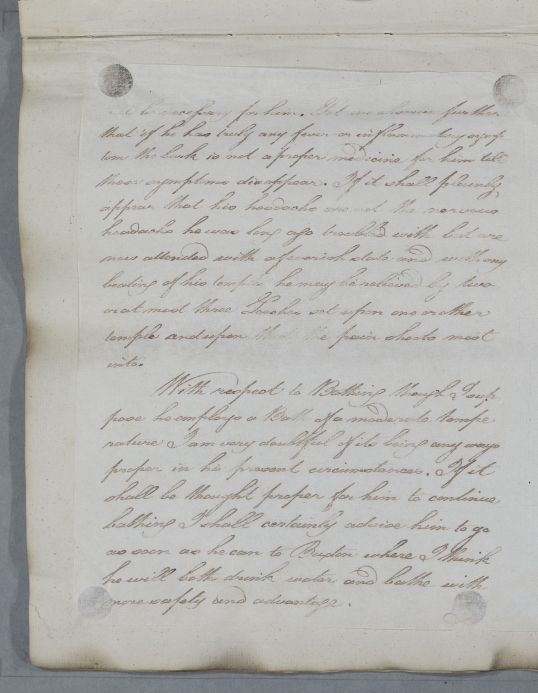 be necessary for him. But we observe further
that if he has truly any fever or inflammatory symp
toms the bark is not a proper medicine for him till
these symptoms disappear. If it shall plainly
appear that his headachs are not the nervous
headachs he was long ago troubled with but are
now attended with a feverish state and with any
beating of his temples he may be relieved by two
or at most three Leeches set upon one or other
temple and upon that the pain shoots most
into.
With respect to Bathing though I sup
pose he employs a Bath of a moderate tempe
rature I am very doubtful of its being any ways
proper in his present circumstances. If it
shall be thought proper for him to continue
bathing I shall certainly advise him to go
as soon as he can to Buxton where I think
he will both drink water and bathe with
more safety and advantage.